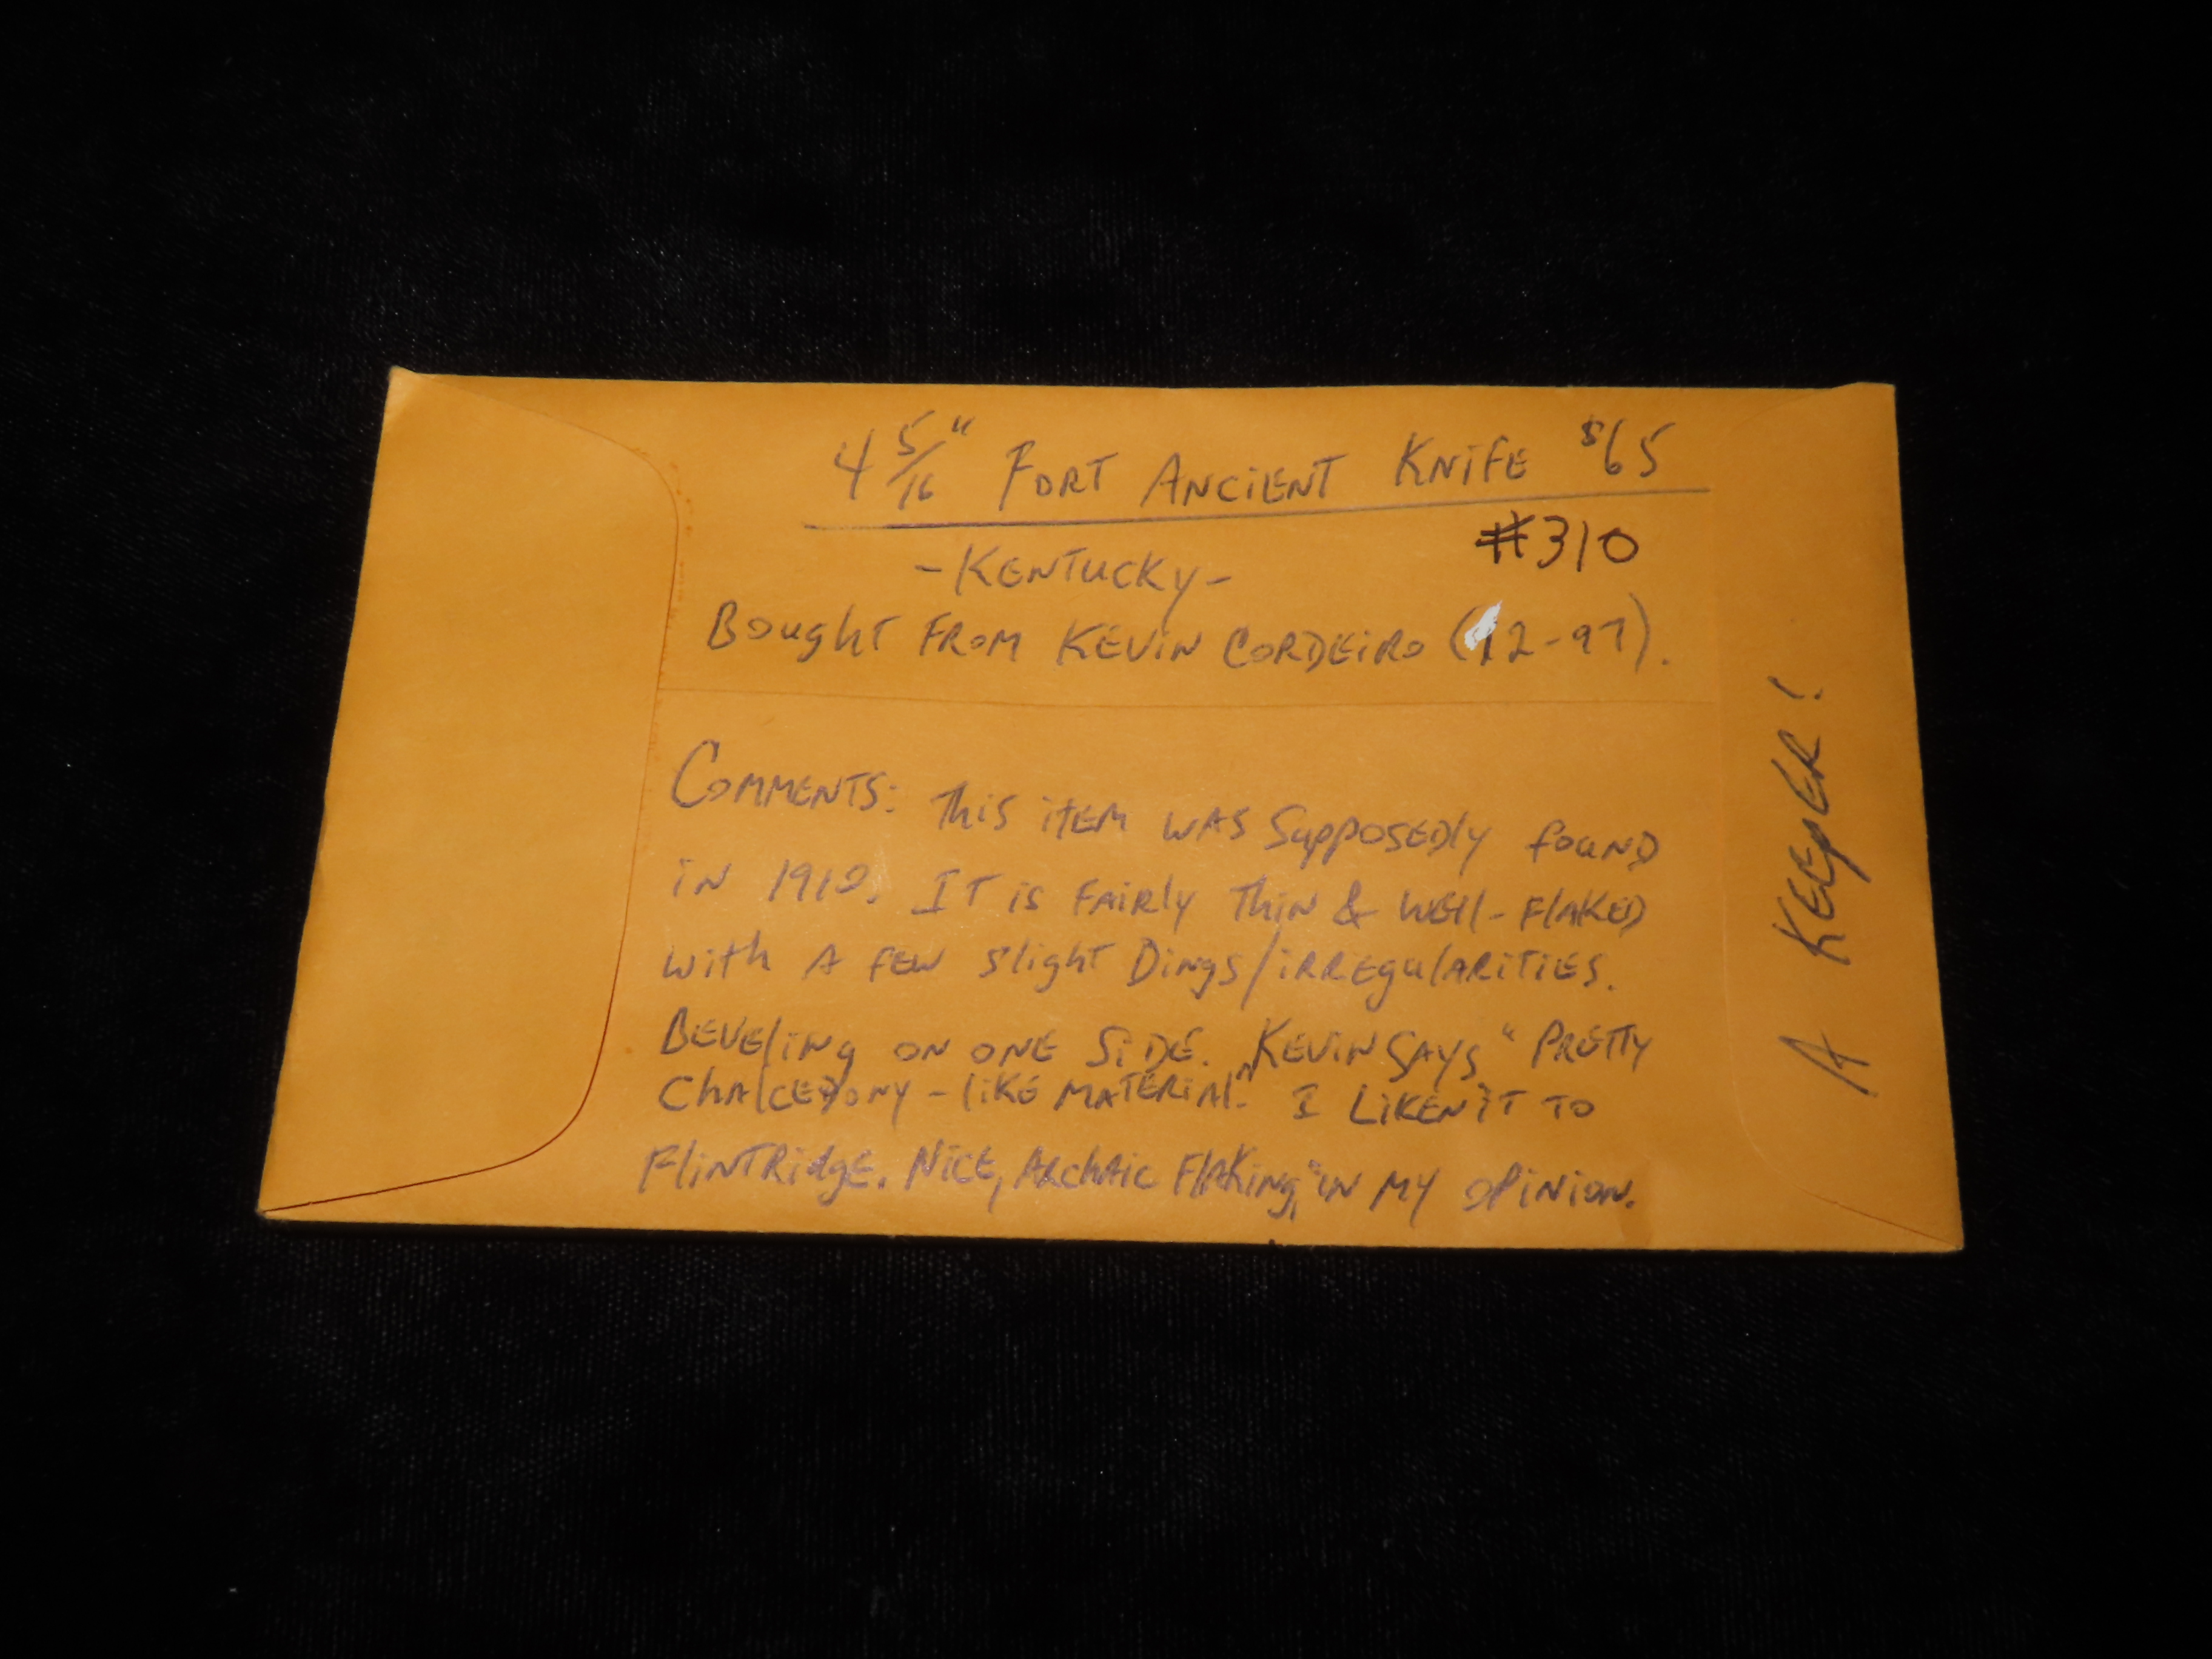 4 5/16" FORT ANCIENT KNIFE $65
#310
-KENTUCKY-
BOUGHT FROM KEVIN CORDEIRO (12-97).
COMMENTS: This iTEM WAS SuppOSEDly fOuND
iN 1910. IT is FAiRly ThiN & WEll-FlAKED
with A FEW Slight DiNgs/iRREgulARiTiES.
BEVEliNg ON ONE SiDE. KEViN SAYS "PRETTY
ChAlCEDONY-liKE MATERiAl." I LiKEN iT TO
FliNTRidgE. NiCE, "ARChAiC FlAKiNg," iN MY OPiNiON.
A KEEpER!